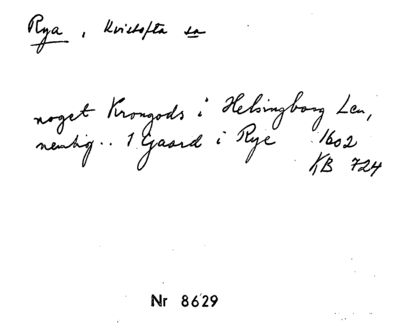 Rya, Kvistofta sn
noget Krongods i Helsingborg Len,
nemlig .. 1 Gaard i Rye 1602
KB 724
Nr 8629